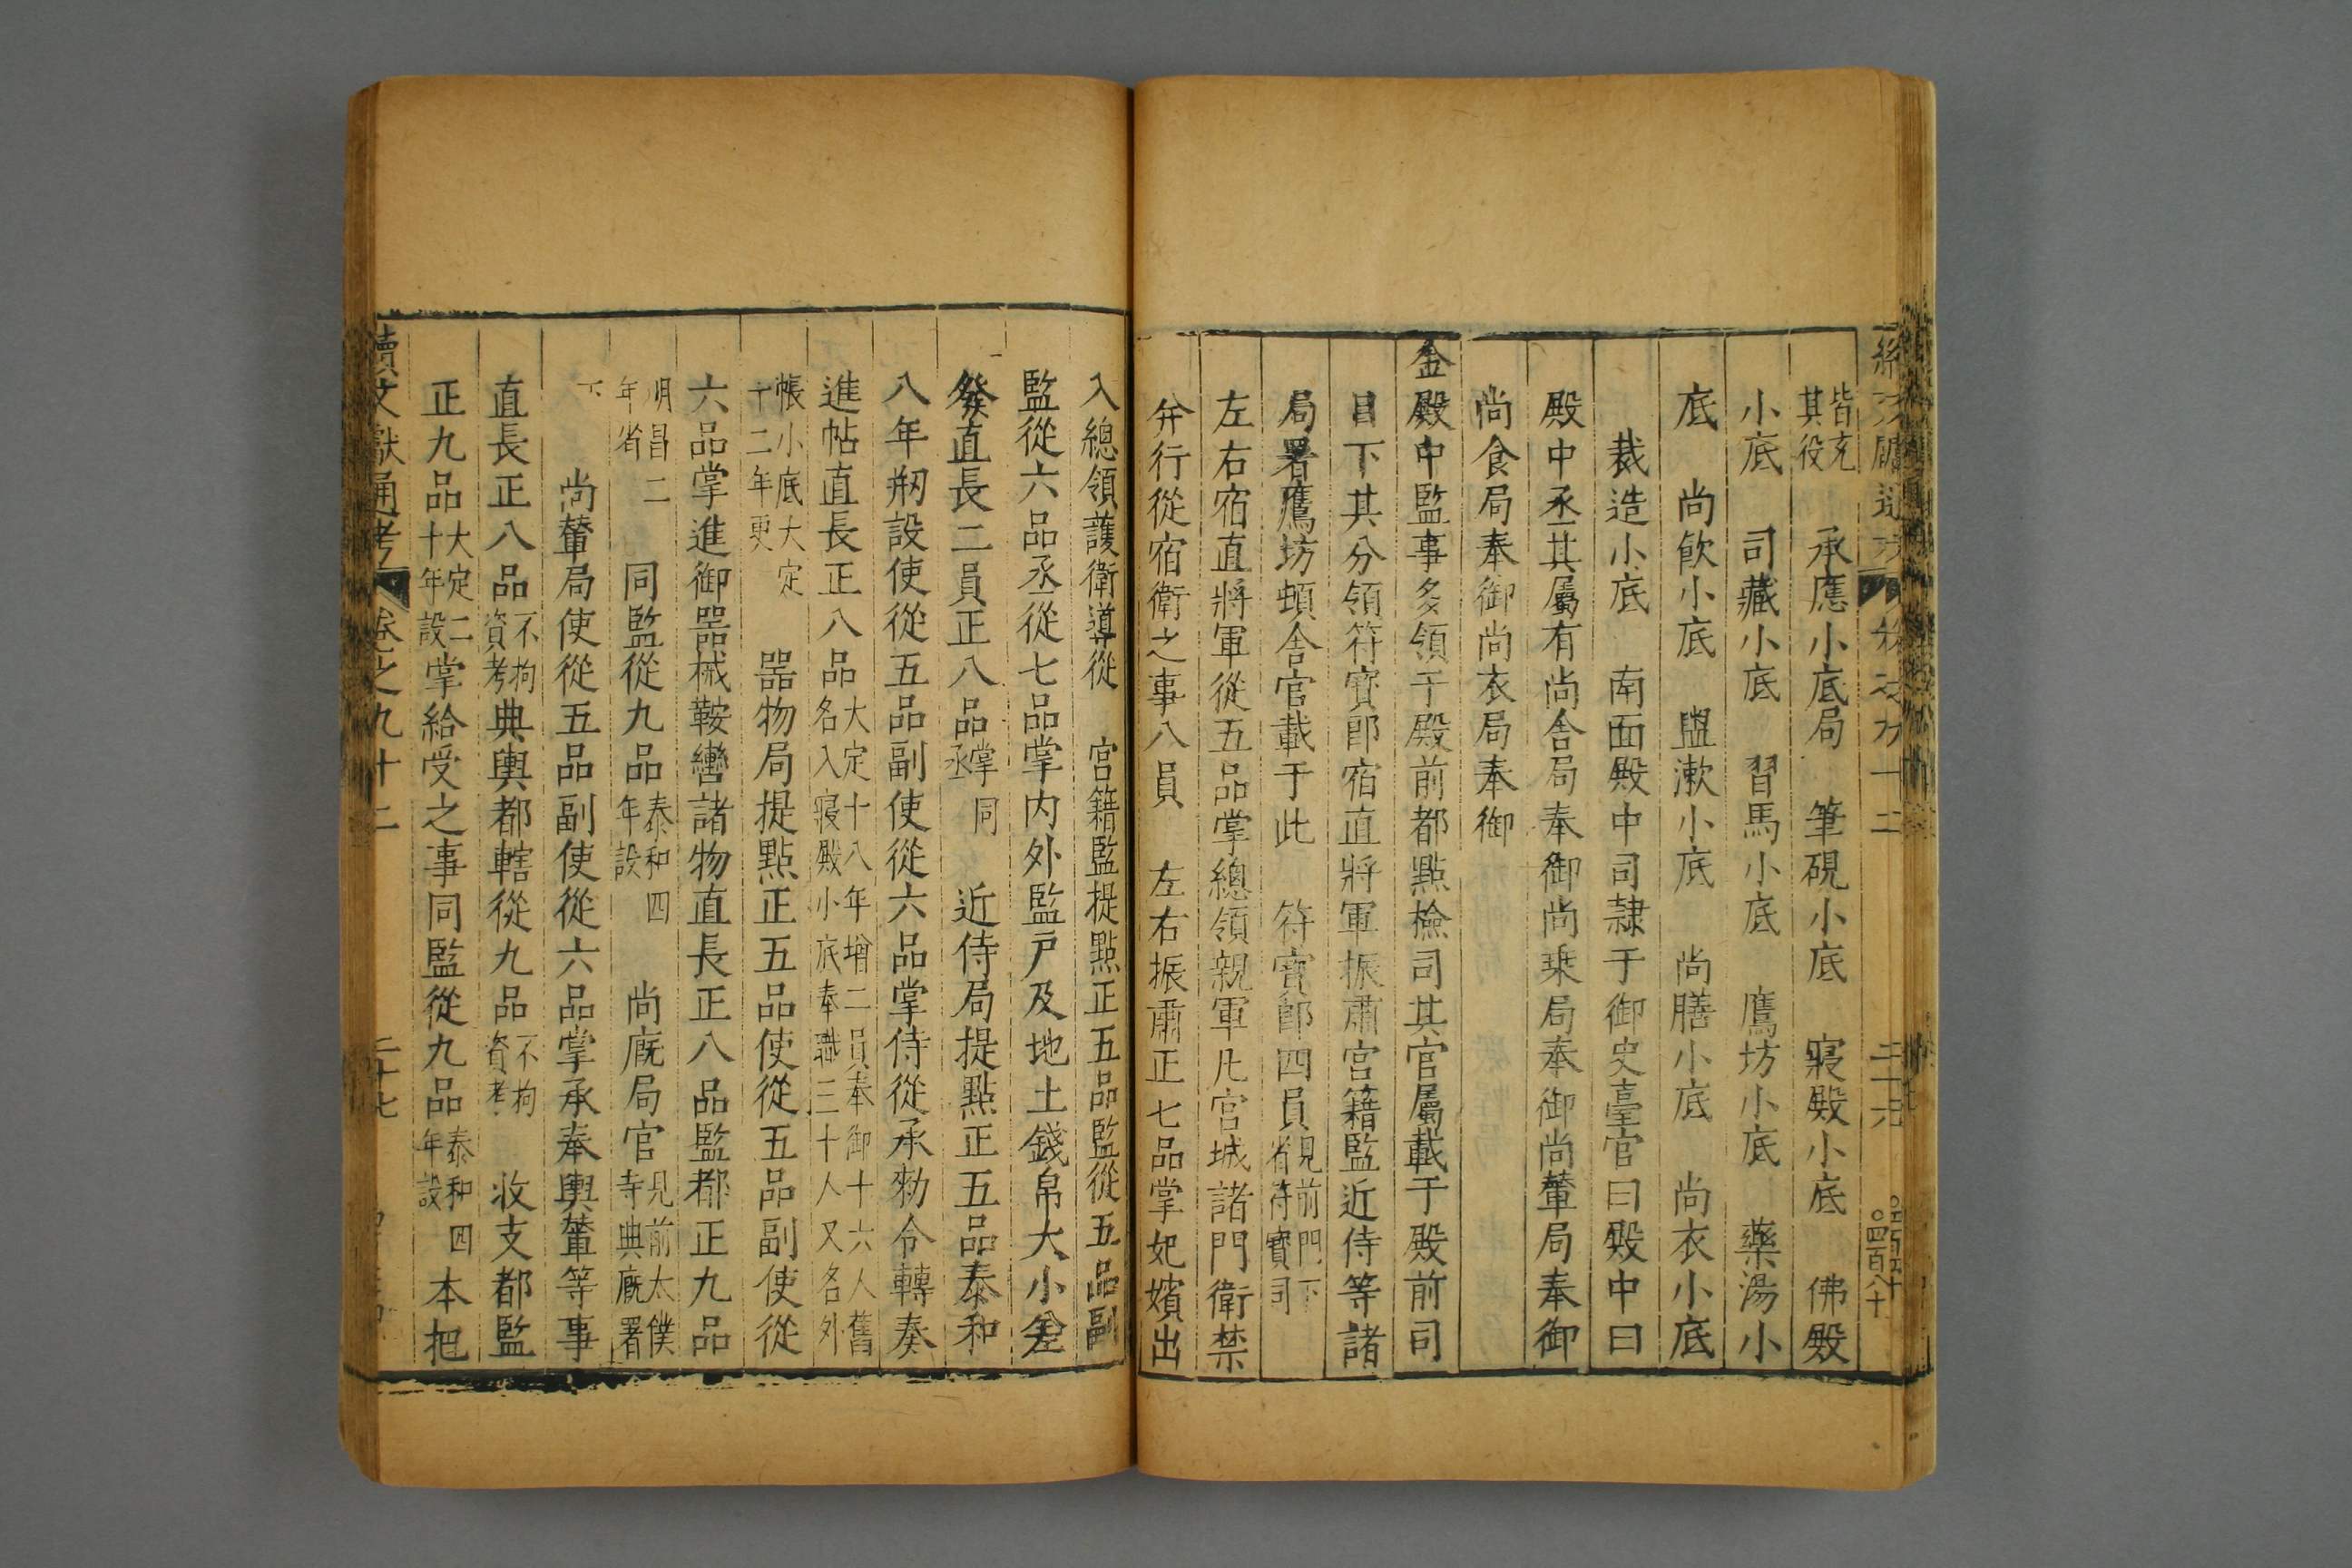 皆充其役　承應小底局　筆硯小底　寢殿小底　佛殿
小底　司藏小底　習馬小底　鷹坊小底　藥湯小
底　尚飮小底　盥漱小底　尚膳小底　尚衣小底
裁造小底　南面殿中司隷于御史臺官曰殿中曰
殿中丞其屬有尚舍局奉御尚乗局奉御尚輦局奉御
尚食局奉御尚衣局奉御
金殿中監事多領于殿前都點檢司其官屬載于殿前司
目下其分領符寳郎宿直將軍振肅宮籍監近侍等諸
局署鷹坊頓舍官載于此　符寳郎四員見前門下省符寳司
左右宿直將軍從五品掌總領親軍凡宮城諸門衛禁
并行從宿衛之事八員　左右振肅正七品掌妃嬪出
入總領護衛導從　宮籍監提點正五品監從五品副
監從六品丞從七品掌内外監戸及地土錢帛大小差
發直長二員正八品掌同丞　近侍局提點正五品泰和
八年剏設使從五品副使從六品掌侍從承勑令轉奏
進帖直長正八品大定十八年增二員奉御十六人舊名入寢殿小底奉職三十人又名外
帳小底大定十二年更　器物局提點正五品使從五品副使從
六品掌進御器械鞍轡諸物直長正八品監都正九品
明昌二年省　同監從九品泰和四年設　尚廐局官見前太僕寺典廐署
下　尚輦局使從五品副使從六品掌承奉輿輦等事
直長正八品不拘資考典輿都轄從九品不拘資考　收支都監
正九品大定二十年設掌給受之事同監從九品泰和四年設　本把
續文獻通考　卷之九十二　二十七